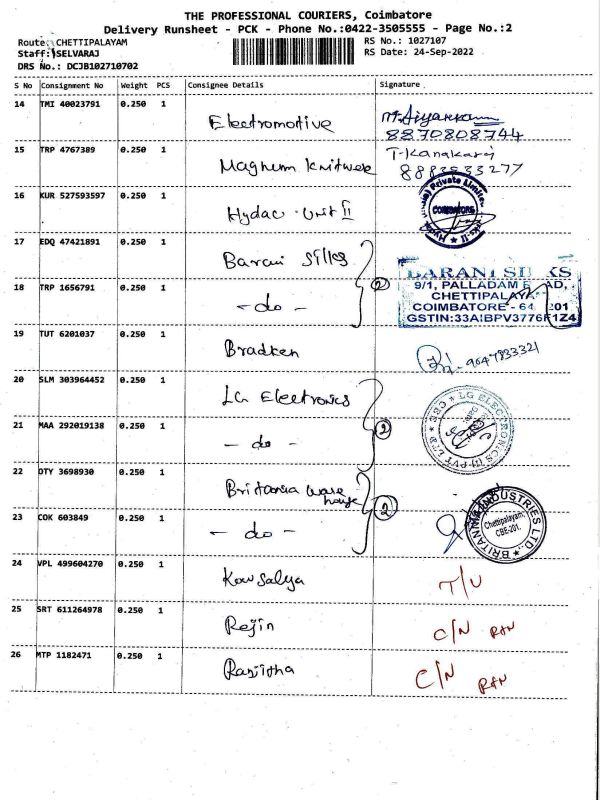 THE PROFESSIONAL COURIERS, Coimbatore
Delivery Runsheet - PCK - Phone No.:0422-3505555 - Page No.:2
Route: CHETTIPALAYAM
RS No.: 1027107
Staff: SELVARAJ
RS Date: 24-Sep-2022
DRS No.: DCJB102710702
S No Consignment No Weight PCS Consignee Details Signature
14 TMI 40023791 0.250 1 Electromotive
8870808744
15 TRP 4767389 0.250 1 Magnum Knitwear T-Kanakaraj
8883833277
16 KUR 527593597 0.250 1 Hydac Unit II
COIMBATORE
17 EDQ 47421891 0.250 1 Barani Silks
18 TRP 1656791 0.250 1 - do - 2
BARANI SILKS
9/1, PALLADAM ROAD,
CHETTIPALAYA
COIMBATORE - 64 201
GSTIN:33AIBPV3776F1Z4
19 TUT 6201037 0.250 1 Bradken 9047833321
20 SLM 303964452 0.250 1 LG Electronics
21 MAA 292019138 0.250 1 - do - 2
LG ELECTRONICS (I) PVT LTD
22 DTY 3698930 0.250 1 Britania ware house
23 COK 603849 0.250 1 - do - 2
BRITANNIA INDUSTRIES LTD.
Chettipalayam,
CBE-201.
24 VPL 499604270 0.250 1 Kowsalya T/U
25 SRT 611264978 0.250 1 Rejin C/N
26 MTP 1182471 0.250 1 Ranjitha C/N